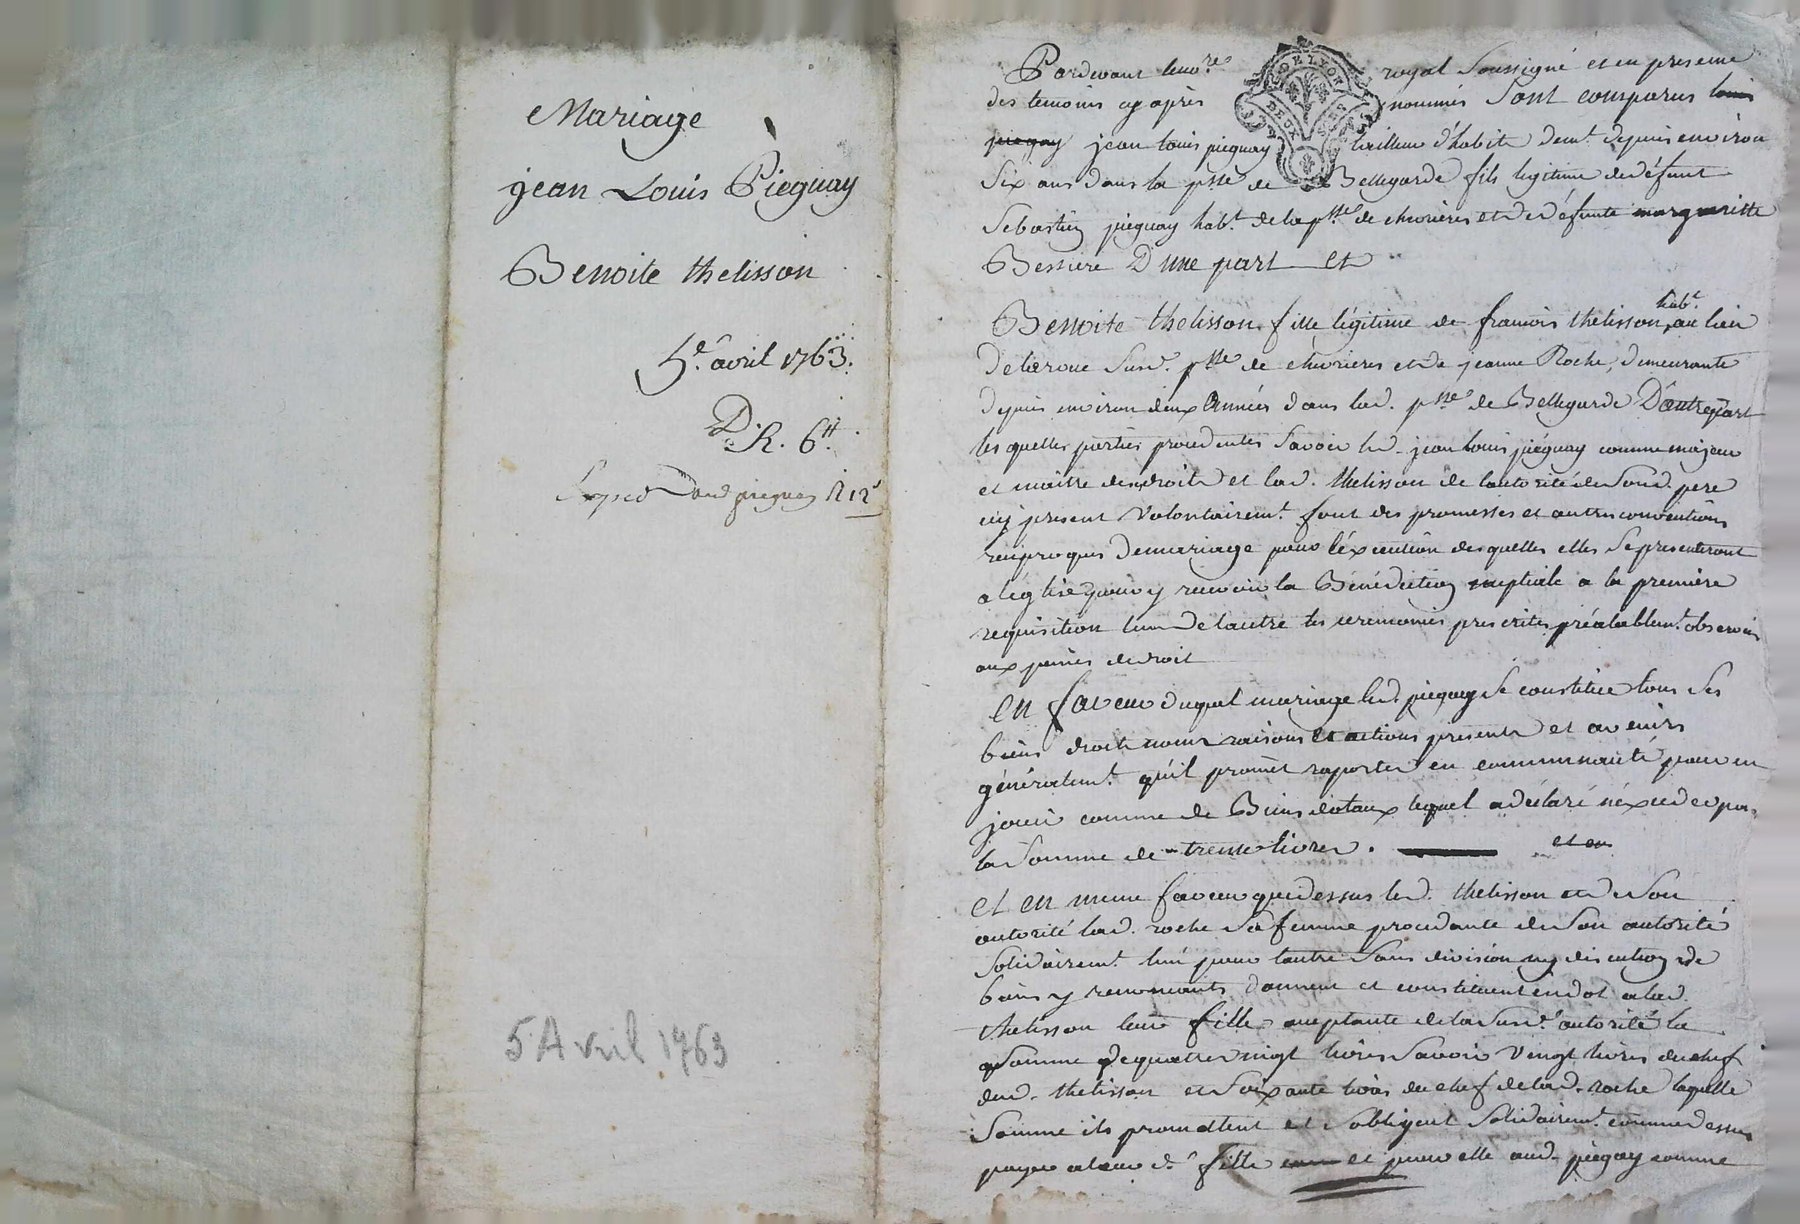 Mariage
jean Louis Pieguay
Benoite thelisson
5.e avril 1763.
D. R. 6#
R 12s
5 Avril 1763
Pardevant le no.re royal Soussigné et en presence
G. DE LYON
DEUX SOLS
des temoins cy apres nommés Sont comparus louis
piegay jean louis pieguay tailleur d'habits dem.t depuis environ
Six ans dans la psse de Bellegarde fils legitime de defunt
Sebastien pieguay hab.t de la psse de chevrieres et de défunte margueritte
Bessiere D'une part et
Benoite thelisson fille légitime de francois thelisson hab.t au lieu
de susd. psse de chevrieres et de jeanne Roche, demeurante
depuis environ deux Années dans lad. psse de Bellegarde D'autre part
les quelles parties procedentes savoir led. jean louis pieguay comme majeur
et maitre de ses droits et lad. thelisson de l'autorité de Sond. pere
icy present volontairem.t font des promesses et autres conventions
reciproques de mariage pour l'éxecution des quelles elles Se presenteront
a leglise pour y recevoir la Bénédiction nuptiale a la premiere
requisition l'un de l'autre les ceremonies prescrites préalablem.t observées
aux peines de droit
en faveur duquel mariage led. piegay Se constitue tous Ses
biens droits noms raisons et actions presents et avenirs
généralem.t qu'il promet raporter en communauté pour en
jouir comme de Biens dotaux lequel a déclaré n'exceder pas
la Somme de trente livres. et en
et en meme faveur que dessus led. thelisson et de son
autorité lad. roche Sa femme procedante de Son autorité
Solidairem.t l'un pour l'autre Sans division ny discution de
biens y renoncants donnent et constituent en dot a lad.
thelisson leur fille acceptante de la Susd.e autorité la
Somme de quatre vingt livres Savoir vingt livres du chef
dud. thelisson et Soixante livres du chef de lad. roche laquelle
Somme ils promettent et s'obligent Solidairem.t comme dessus
payer a leur d.e fille et pour elle aud. piegay comme